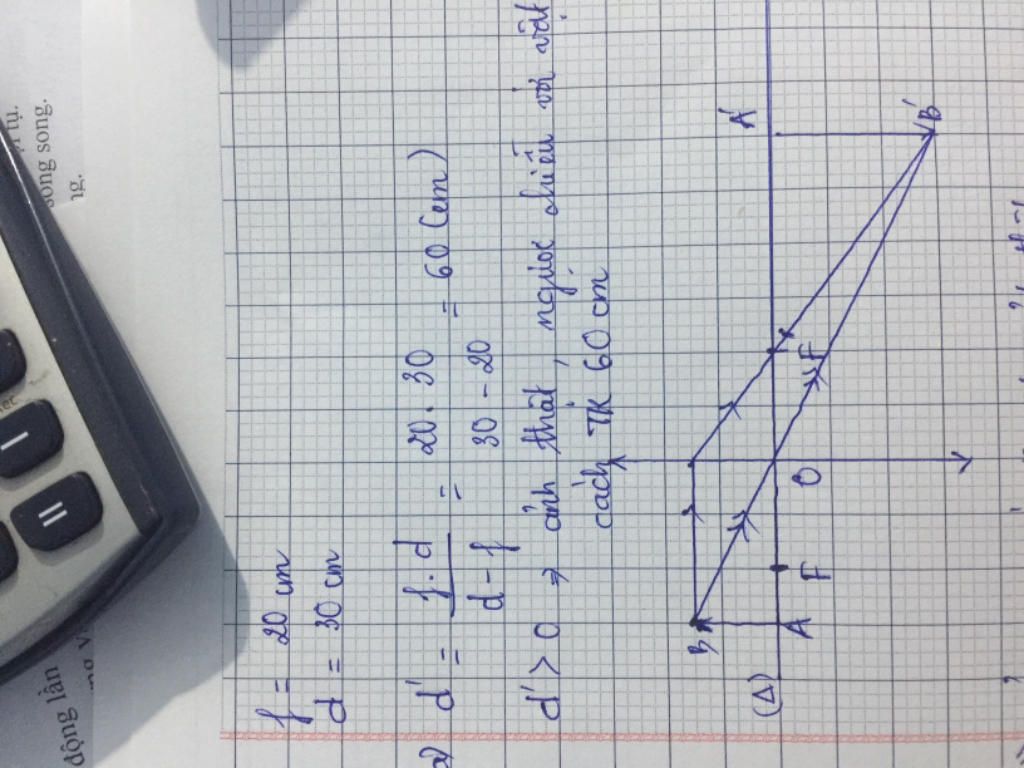 f = 20 cm
d = 30 cm
a) d' = f . d / d - f = 20 . 30 / 30 - 20 = 60 (cm)
d' > 0 => ảnh thật, ngược chiều với vật
cách TK 60 cm
B
A'
(Δ)
A
F
O
F'
B'
động lần
song song.